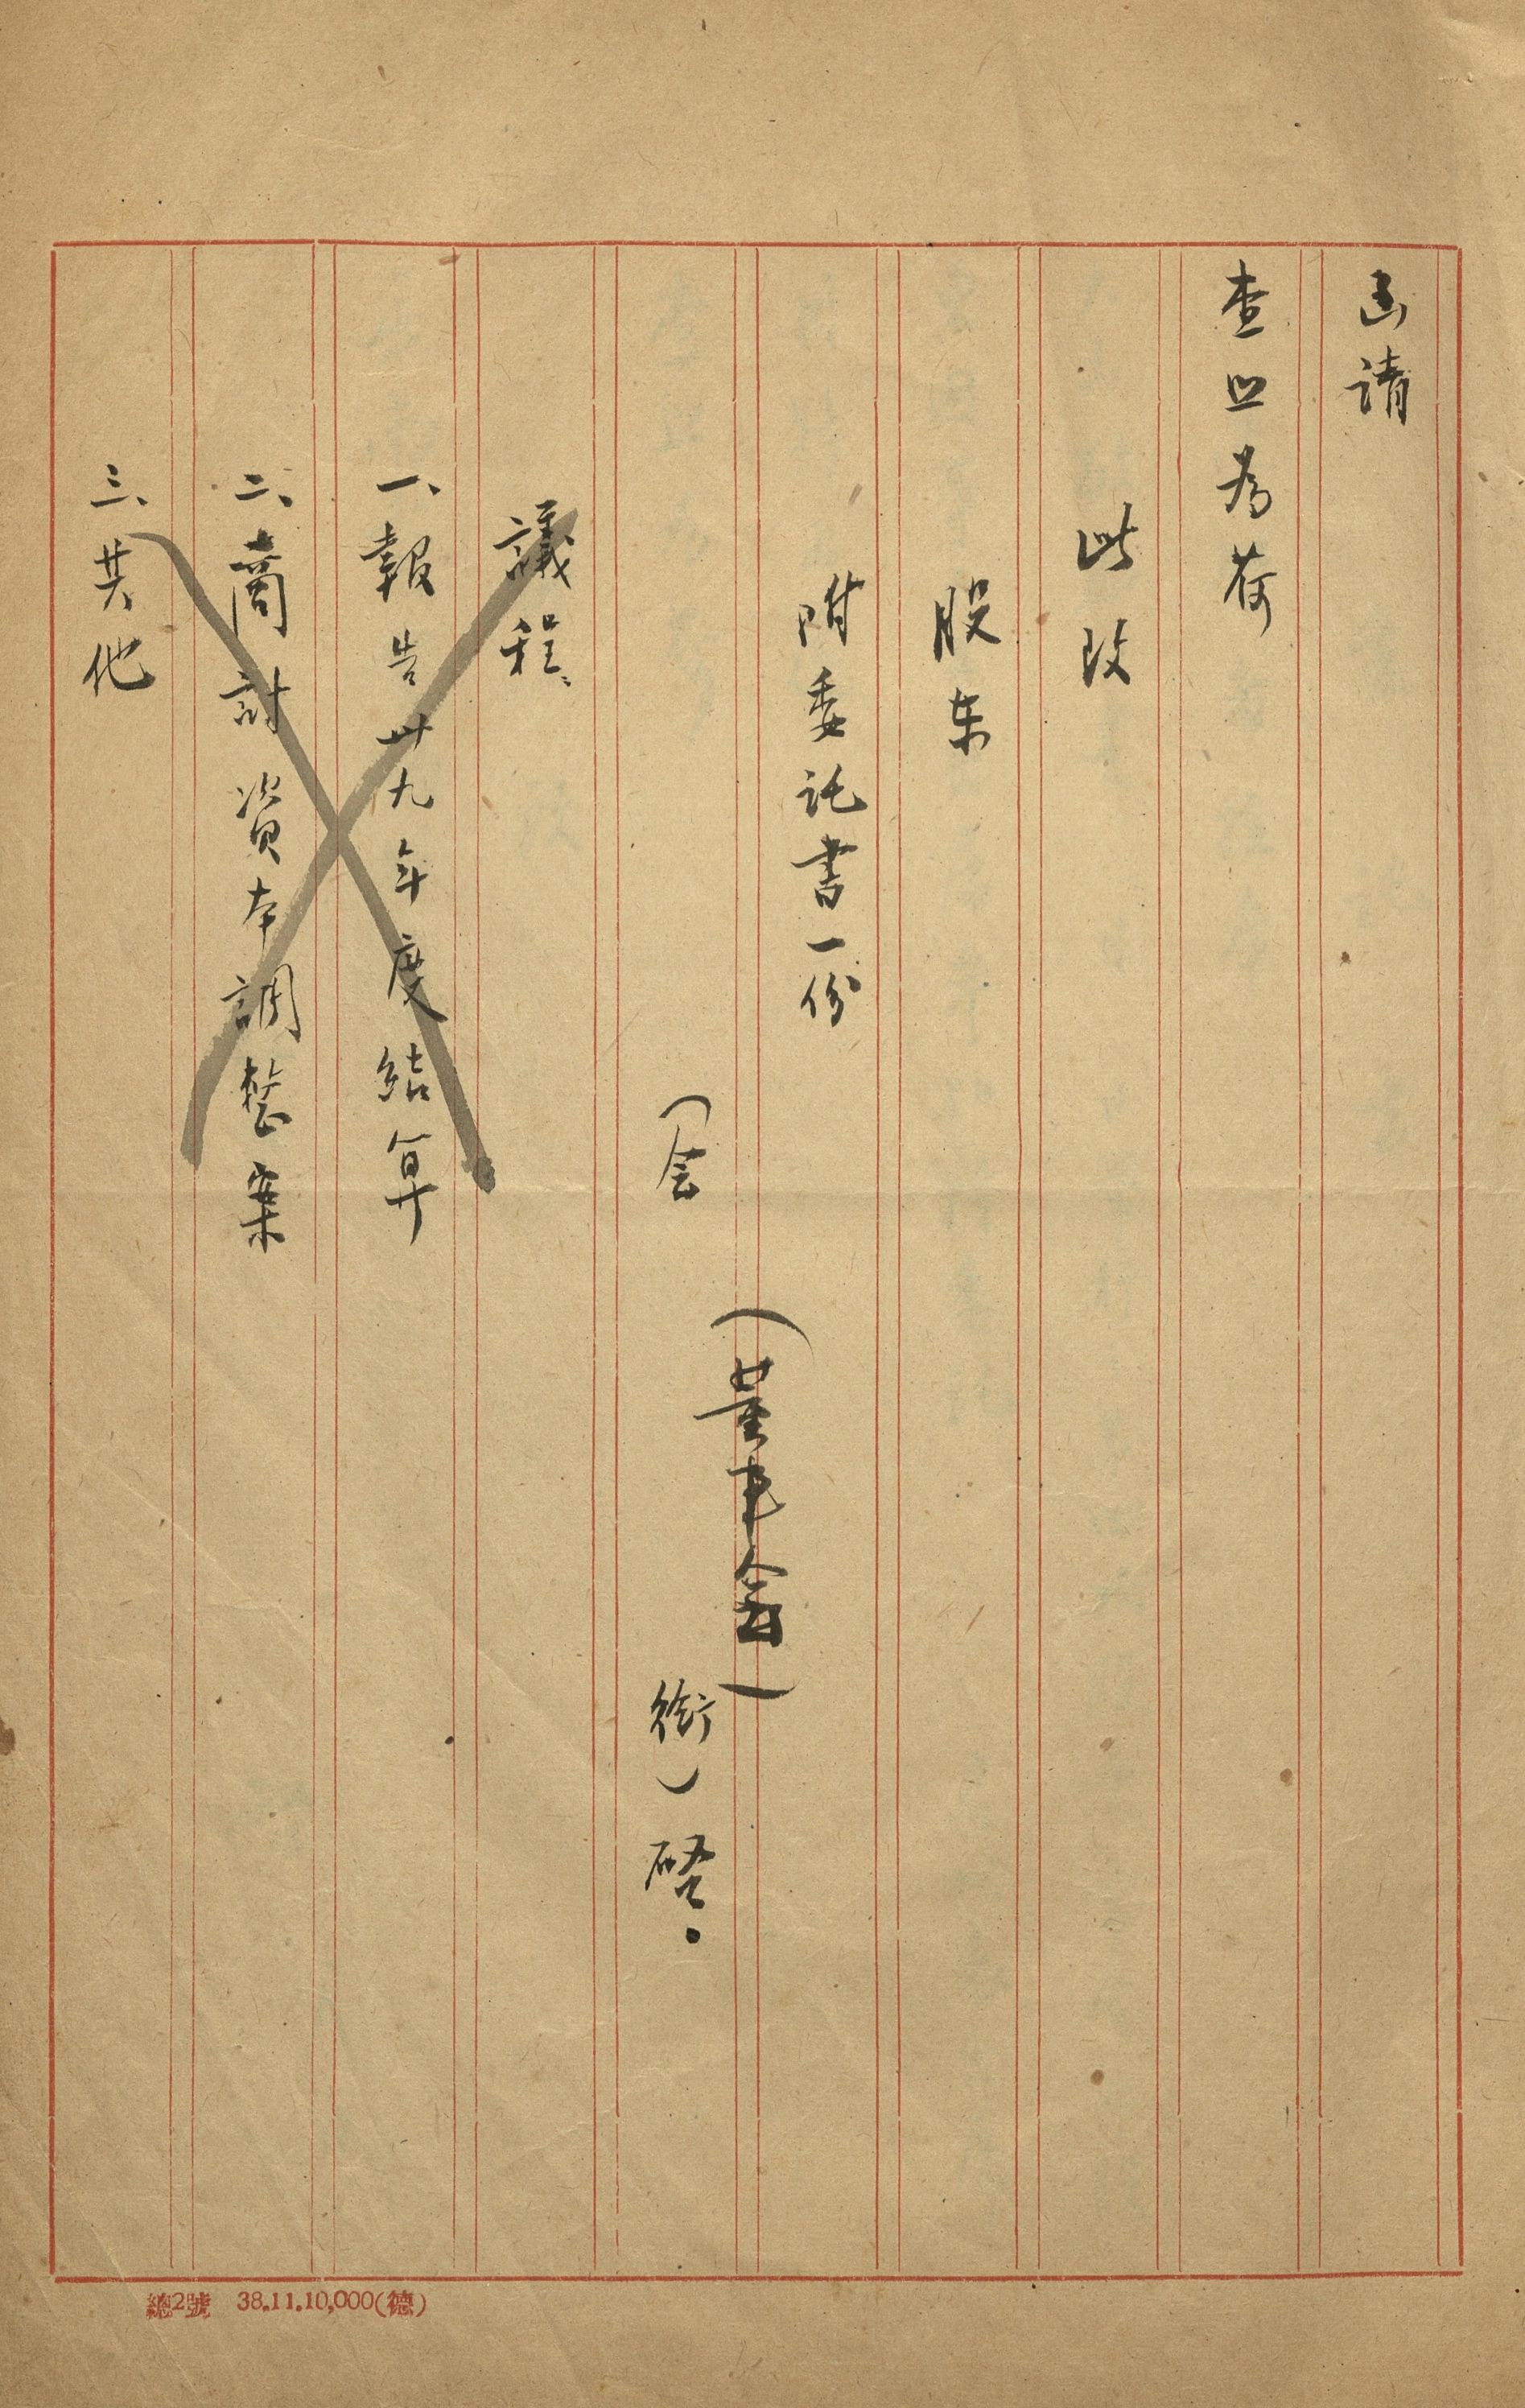 函请
查照为荷
此致
股东
附委託書一份
（董事會）
（会 衔）啓。
議程、
一、報告卅九年度結算
二、商討資本調整案
三、其他
總2號 38.11.10,000(德)